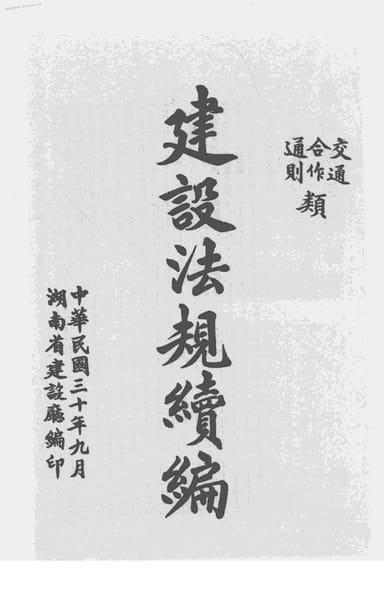 交通
合作
通則
類
建設法規續編
中華民國三十年九月
湖南省建設廳編印